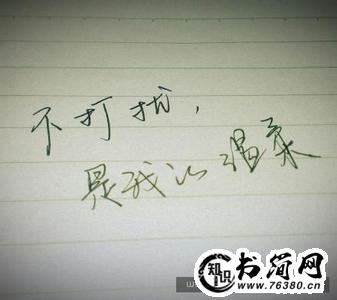 不打扰，
是我的温柔
知识
书简网
www.76380.cn